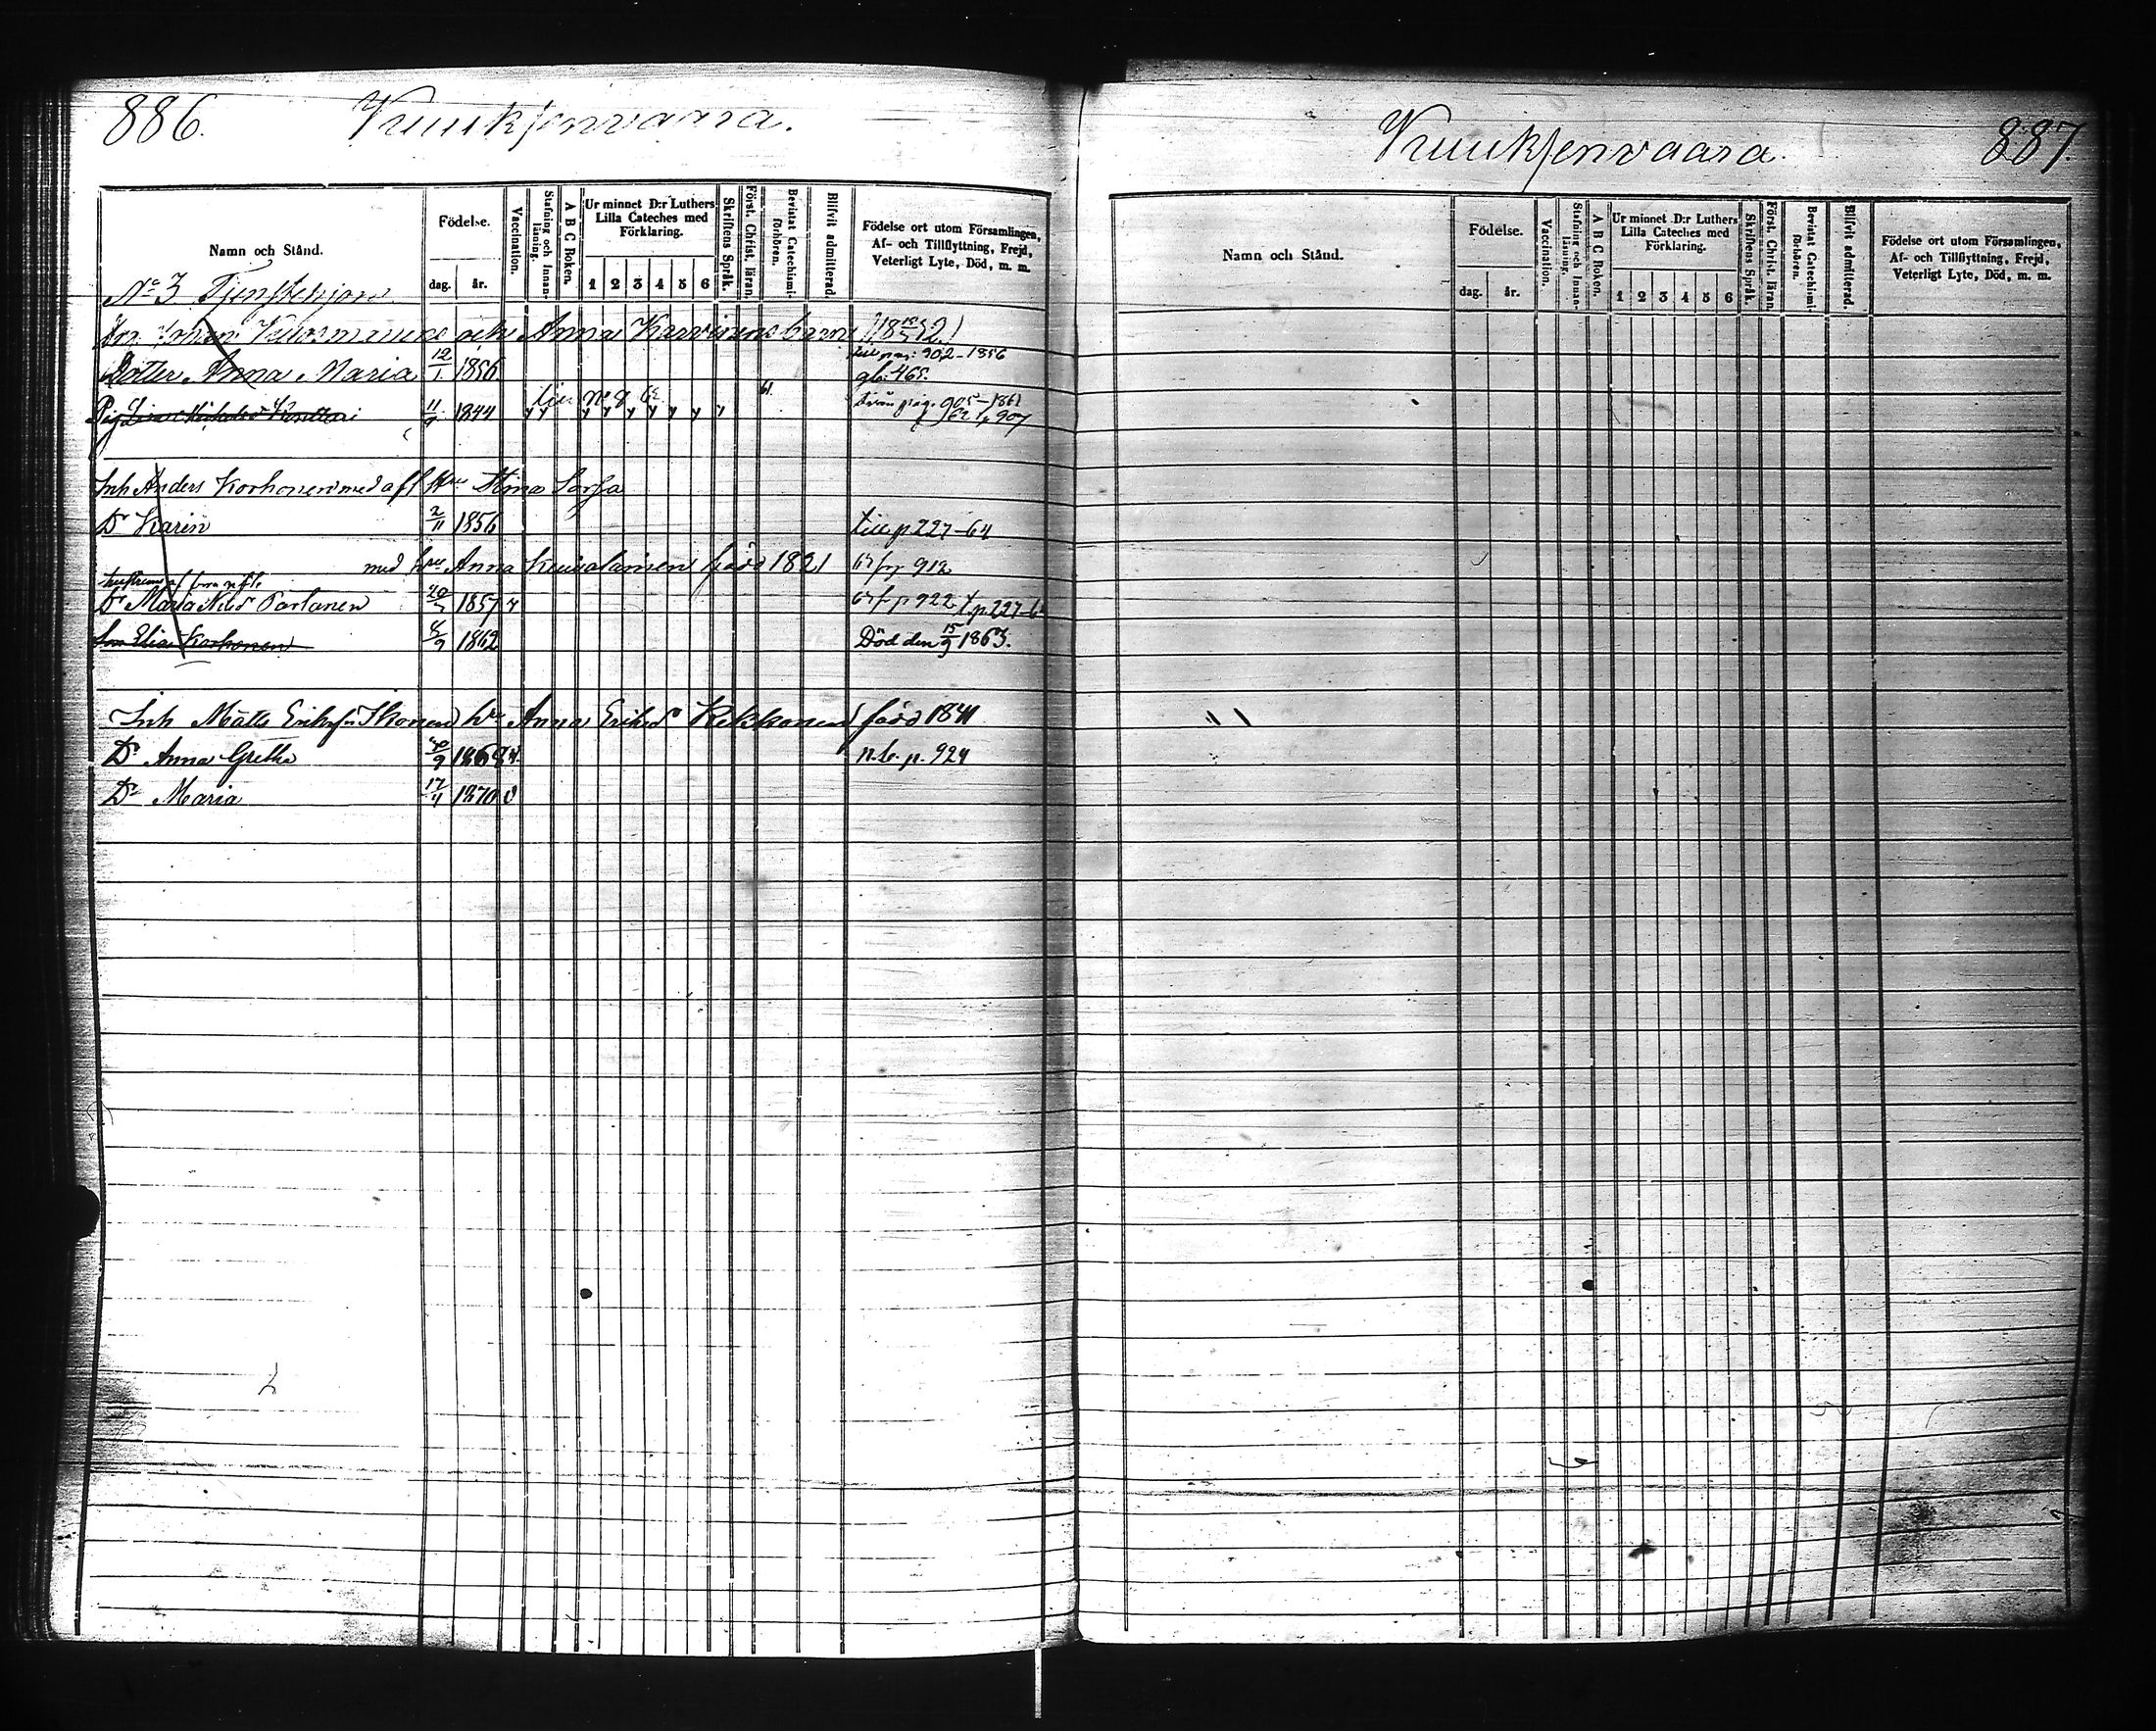 886.
Kuuksenvaara.
Namn och Stånd.
Födelse.
dag.
år.
Vaccination.
Stafning och Innan-läsning.
A B C Boken.
Ur minnet D:r Luthers Lilla Cateches med Förklaring.
1 2 3 4 5 6
Skriftens Språk.
Först. Christ. läran.
Bevistat Catechismi-förhören.
Blifvit admitterad.
Födelse ort utom Församlingen, Af- och Tillflyttning, Frejd, Veterligt Lyte, Död, m. m.
No 3 Tjenstehjon
Johan och Anna barn
Dotter Anna Maria 12/1 1856. till pag: 902-1856
gla: 465.
till No 8 62 61
Pig 11/9 1844 från pag. 905-1861
62 907
Inh Anders Korhonen med afl Hru Stina Sorsa
Dr Karin 2/11 1856 till p 227-64
med hru Anna född 1821 912
Dr Maria Nilsdr Partanen 20/3 1857 p 922 t. p 227-6
Son Elias Korhonen 4/9 1862 Död den 15/9 1863.
Inh Matts Eriksson Ikonen hru Anna Eriksdr Kekkonen född 1841
Dr Anna Gretha 9 1868 n. b. p. 924
Dr Maria 17/4 1870
Kuuksenvaara.
887.
Namn och Stånd.
Födelse.
dag.
år.
Vaccination.
Stafning och Innan-läsning.
A B C Boken.
Ur minnet D:r Luthers Lilla Cateches med Förklaring.
1 2 3 4 5 6
Skriftens Språk.
Först. Christ. läran.
Bevistat Catechismi-förhören.
Blifvit admitterad.
Födelse ort utom Församlingen, Af- och Tillflyttning, Frejd, Veterligt Lyte, Död, m. m.